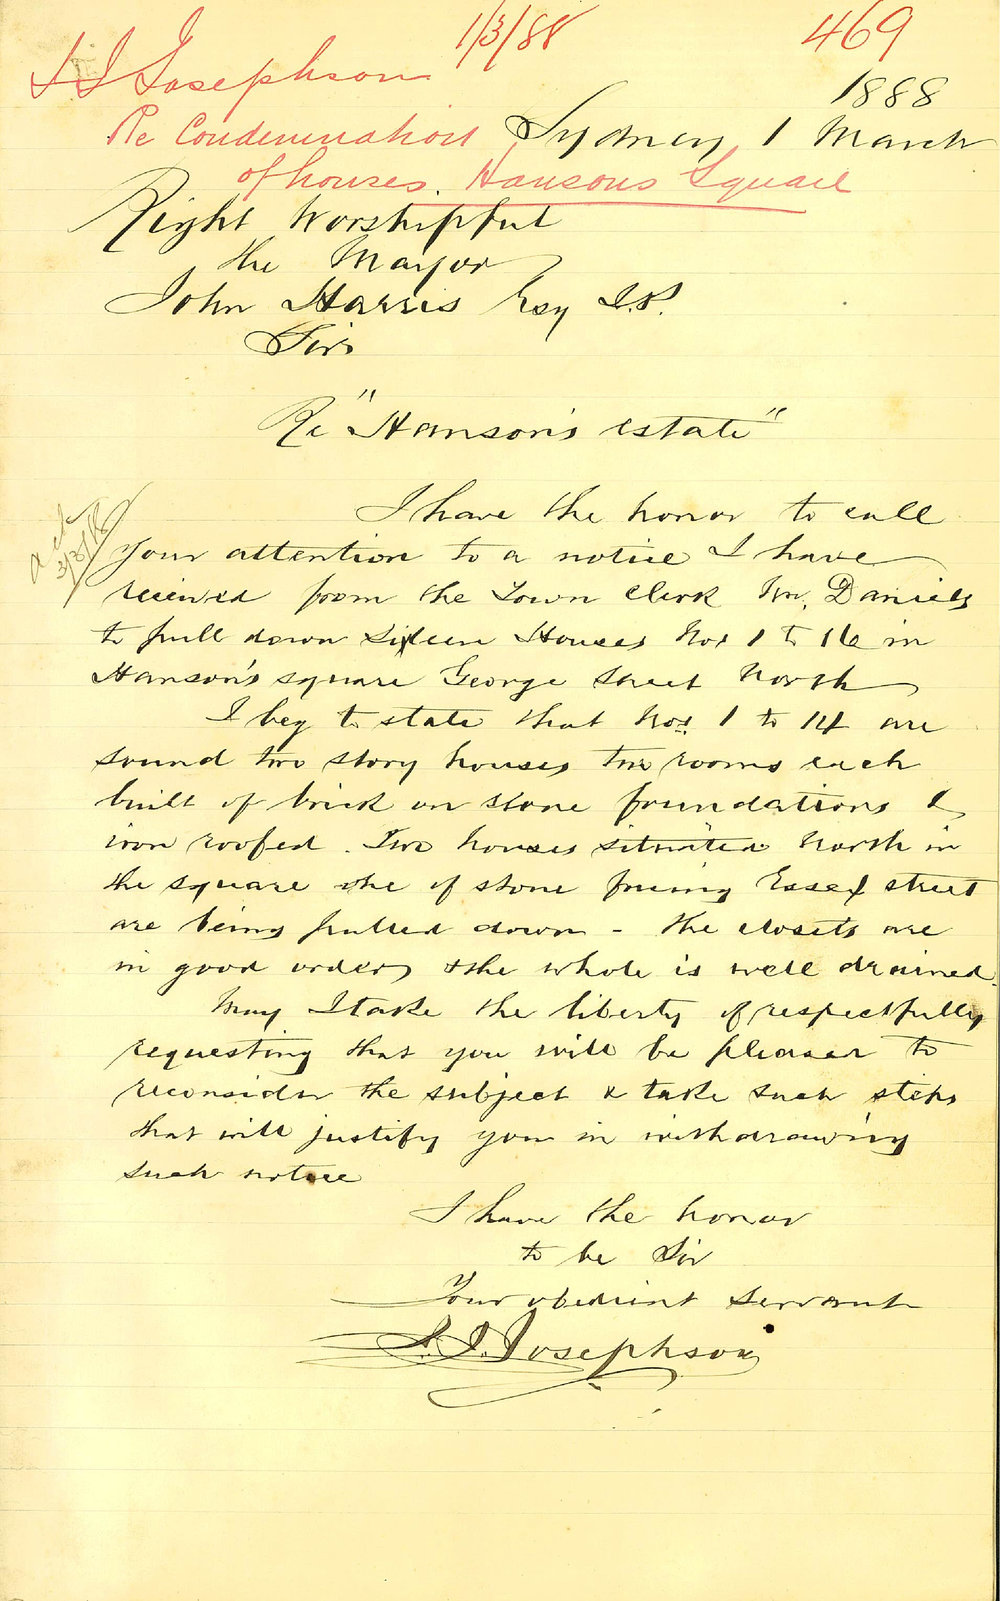 1/3/88 469
S I Josephson
1888
Re Condemnation Sydney 1 March
of houses. Hansons Square
Right Worshipful
the Mayor
John Harris Esq J.P.
Sir
Re "Hanson's estate"
I have the honor to call
your attention to a notice I have
Ack
3/3/88
received from the Town Clerk Mr. Daniels
to pull down Sixteen Houses Nos 1 to 16 in
Hanson's square George Street North
I beg to state that Nos 1 to 14 are
sound two story houses two rooms each
built of brick on stone foundations &
iron roofed. Two houses situated North in
the square one of stone facing Essex street
are being pulled down - the closets are
in good order, & the whole is well drained.
May I take the liberty of respectfully
requesting that you will be pleased to
reconsider the subject & take such steps
that will justify you in withdrawing
such notice
I have the honor
to be Sir
Your obedient servant
S. I. Josephson